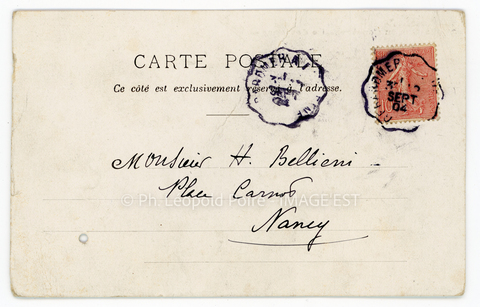 CARTE POSTALE
Ce côté est exclusivement réservé à l'adresse.
GERARDMER A
SEPT
04
GERARDMER
SEPT
04
Monsieur H. Bellieni
Place Carnot
© Ph. Léopold Poiré - IMAGE'EST
Nancy